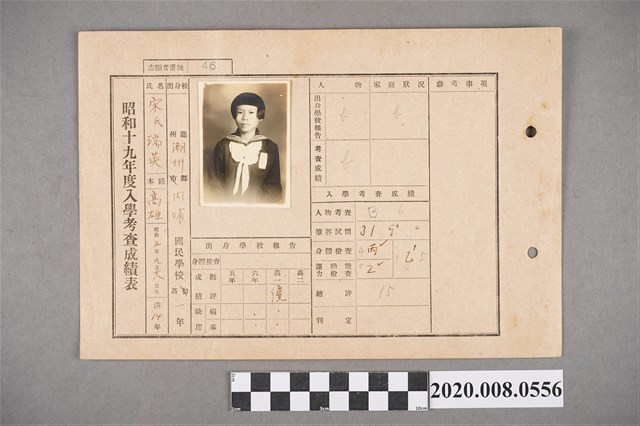 志願者番號 46
昭和十九年度入學考查成績表
氏名 宋氏瑞英
本籍 高雄
出身校
州 廳
潮州 郡
國民學校 高 一年
滿 14年
出身學校報告
身體檢查
成績 概評
五年 六年 高一 高二
缺席 病 事
人物 家庭狀況 參考事項
出身學校報告
考查成績
入學考查成績
人物考查 B
筆答試問 31
身體檢查 丙
運動能力檢査 乙 乙
總評 15
判定
2020.008.0556
5cm 10cm